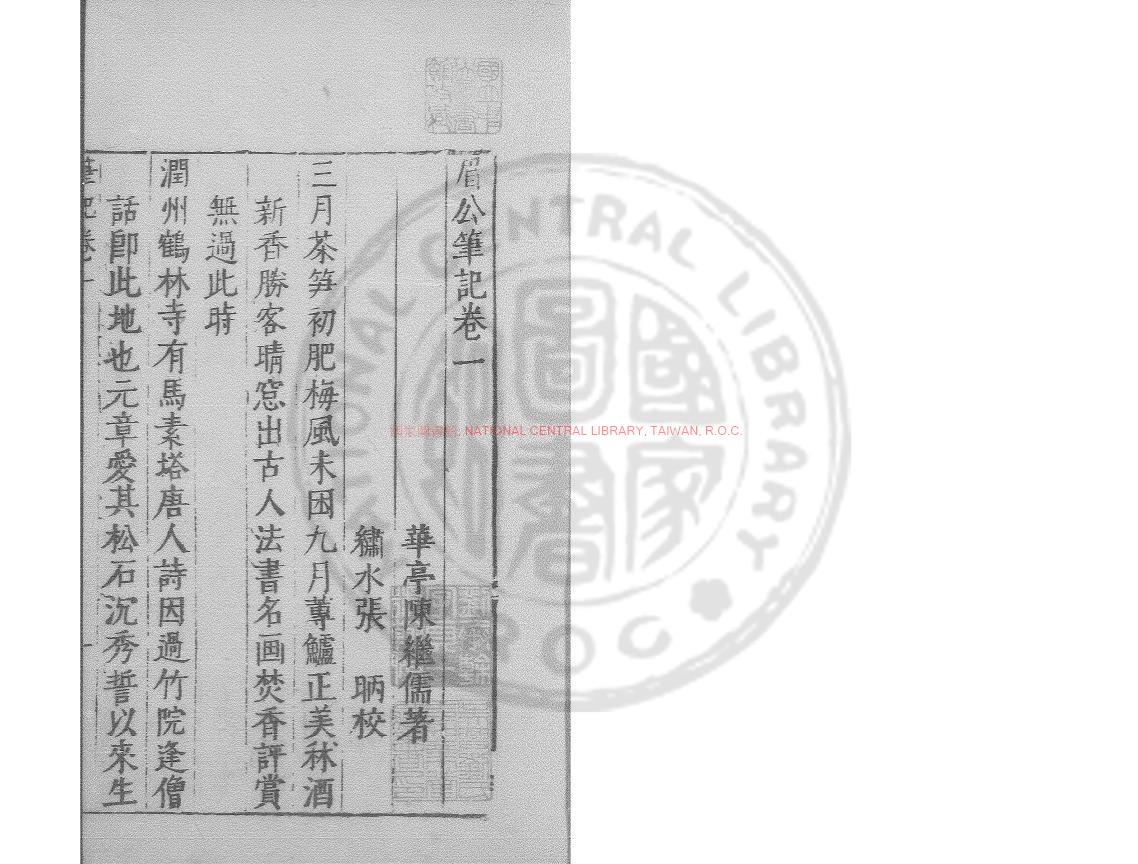 眉公筆記卷一
華亭陳繼儒著
繡水張 昞校
三月茶笋初肥梅風未困九月蓴鱸正美秫酒
新香勝客晴窓出古人法書名画焚香評賞
無過此時
潤州鶴林寺有馬素塔唐人詩因過竹院逢僧
話卽此地也元章愛其松石沉秀誓以來生
筆記卷一
國家圖書館, NATIONAL CENTRAL LIBRARY, TAIWAN, R.O.C.
NATIONAL CENTRAL LIBRARY
R.O.C
國家圖書館